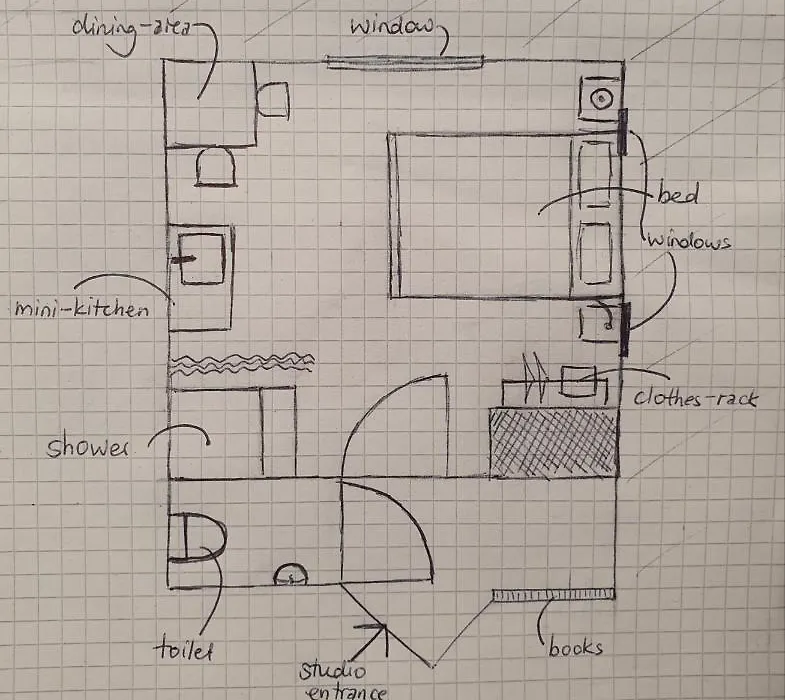 dining-area
window
bed
windows
mini-kitchen
clothes-rack
shower
toilet
studio
entrance
books